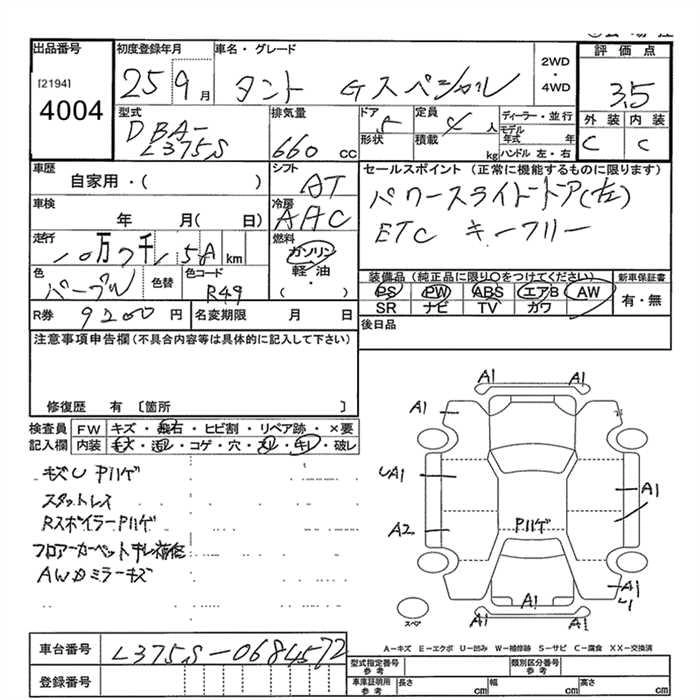 出品番号
[2194]
4004
初度登録年月
25 9月
車名・グレード
タント Gスペシャル
2WD
・
4WD
評価点
3.5
外装 内装
C C
型式
DBA-
L375S
排気量
660 cc
ドア
5
形状
定員
4 人
積載
kg
ディーラー・並行
モデル年式 年
ハンドル 左・右
車歴
自家用・( )
シフト
AT
セールスポイント(正常に機能するものに限ります)
パワースライドドア(左)
ETC キーフリー
車検
年 月( 日)
冷房
AAC
走行
10万7千 km
燃料
ガソリン
・
軽・油
・
( )
色
パープル
色替
色コード
R49
装備品(純正品に限り○をつけてください)
PS PW ABS エアB AW
SR ナビ TV カワ
新車保証書
有・無
R券 9200 円
名変期限 月 日
後日品
注意事項申告欄(不具合内容等は具体的に記入して下さい)
修復歴 有 〔箇所 〕
検査員記入欄
FW キズ・飛石・ヒビ割・リペア跡・×要
内装 キズ・汚レ・コゲ・穴・スレ・キレ・破レ
キズU Pハゲ
スタットレス
Rスポイラー Pハゲ
フロアーカーペット
AW
ミラーキズ
A1 A1
A1
UA1
A1
A2
Pハゲ
A1
A1 A1
スペア
A−キズ E−エクボ U−凹み W−補修跡 S−サビ C−腐食 XX−交換済
車台番号 L375S-0684572
登録番号
型式指定番号
参考
類別区分番号
参考
車庫証明用
参考
長さ cm 幅 cm 高さ cm